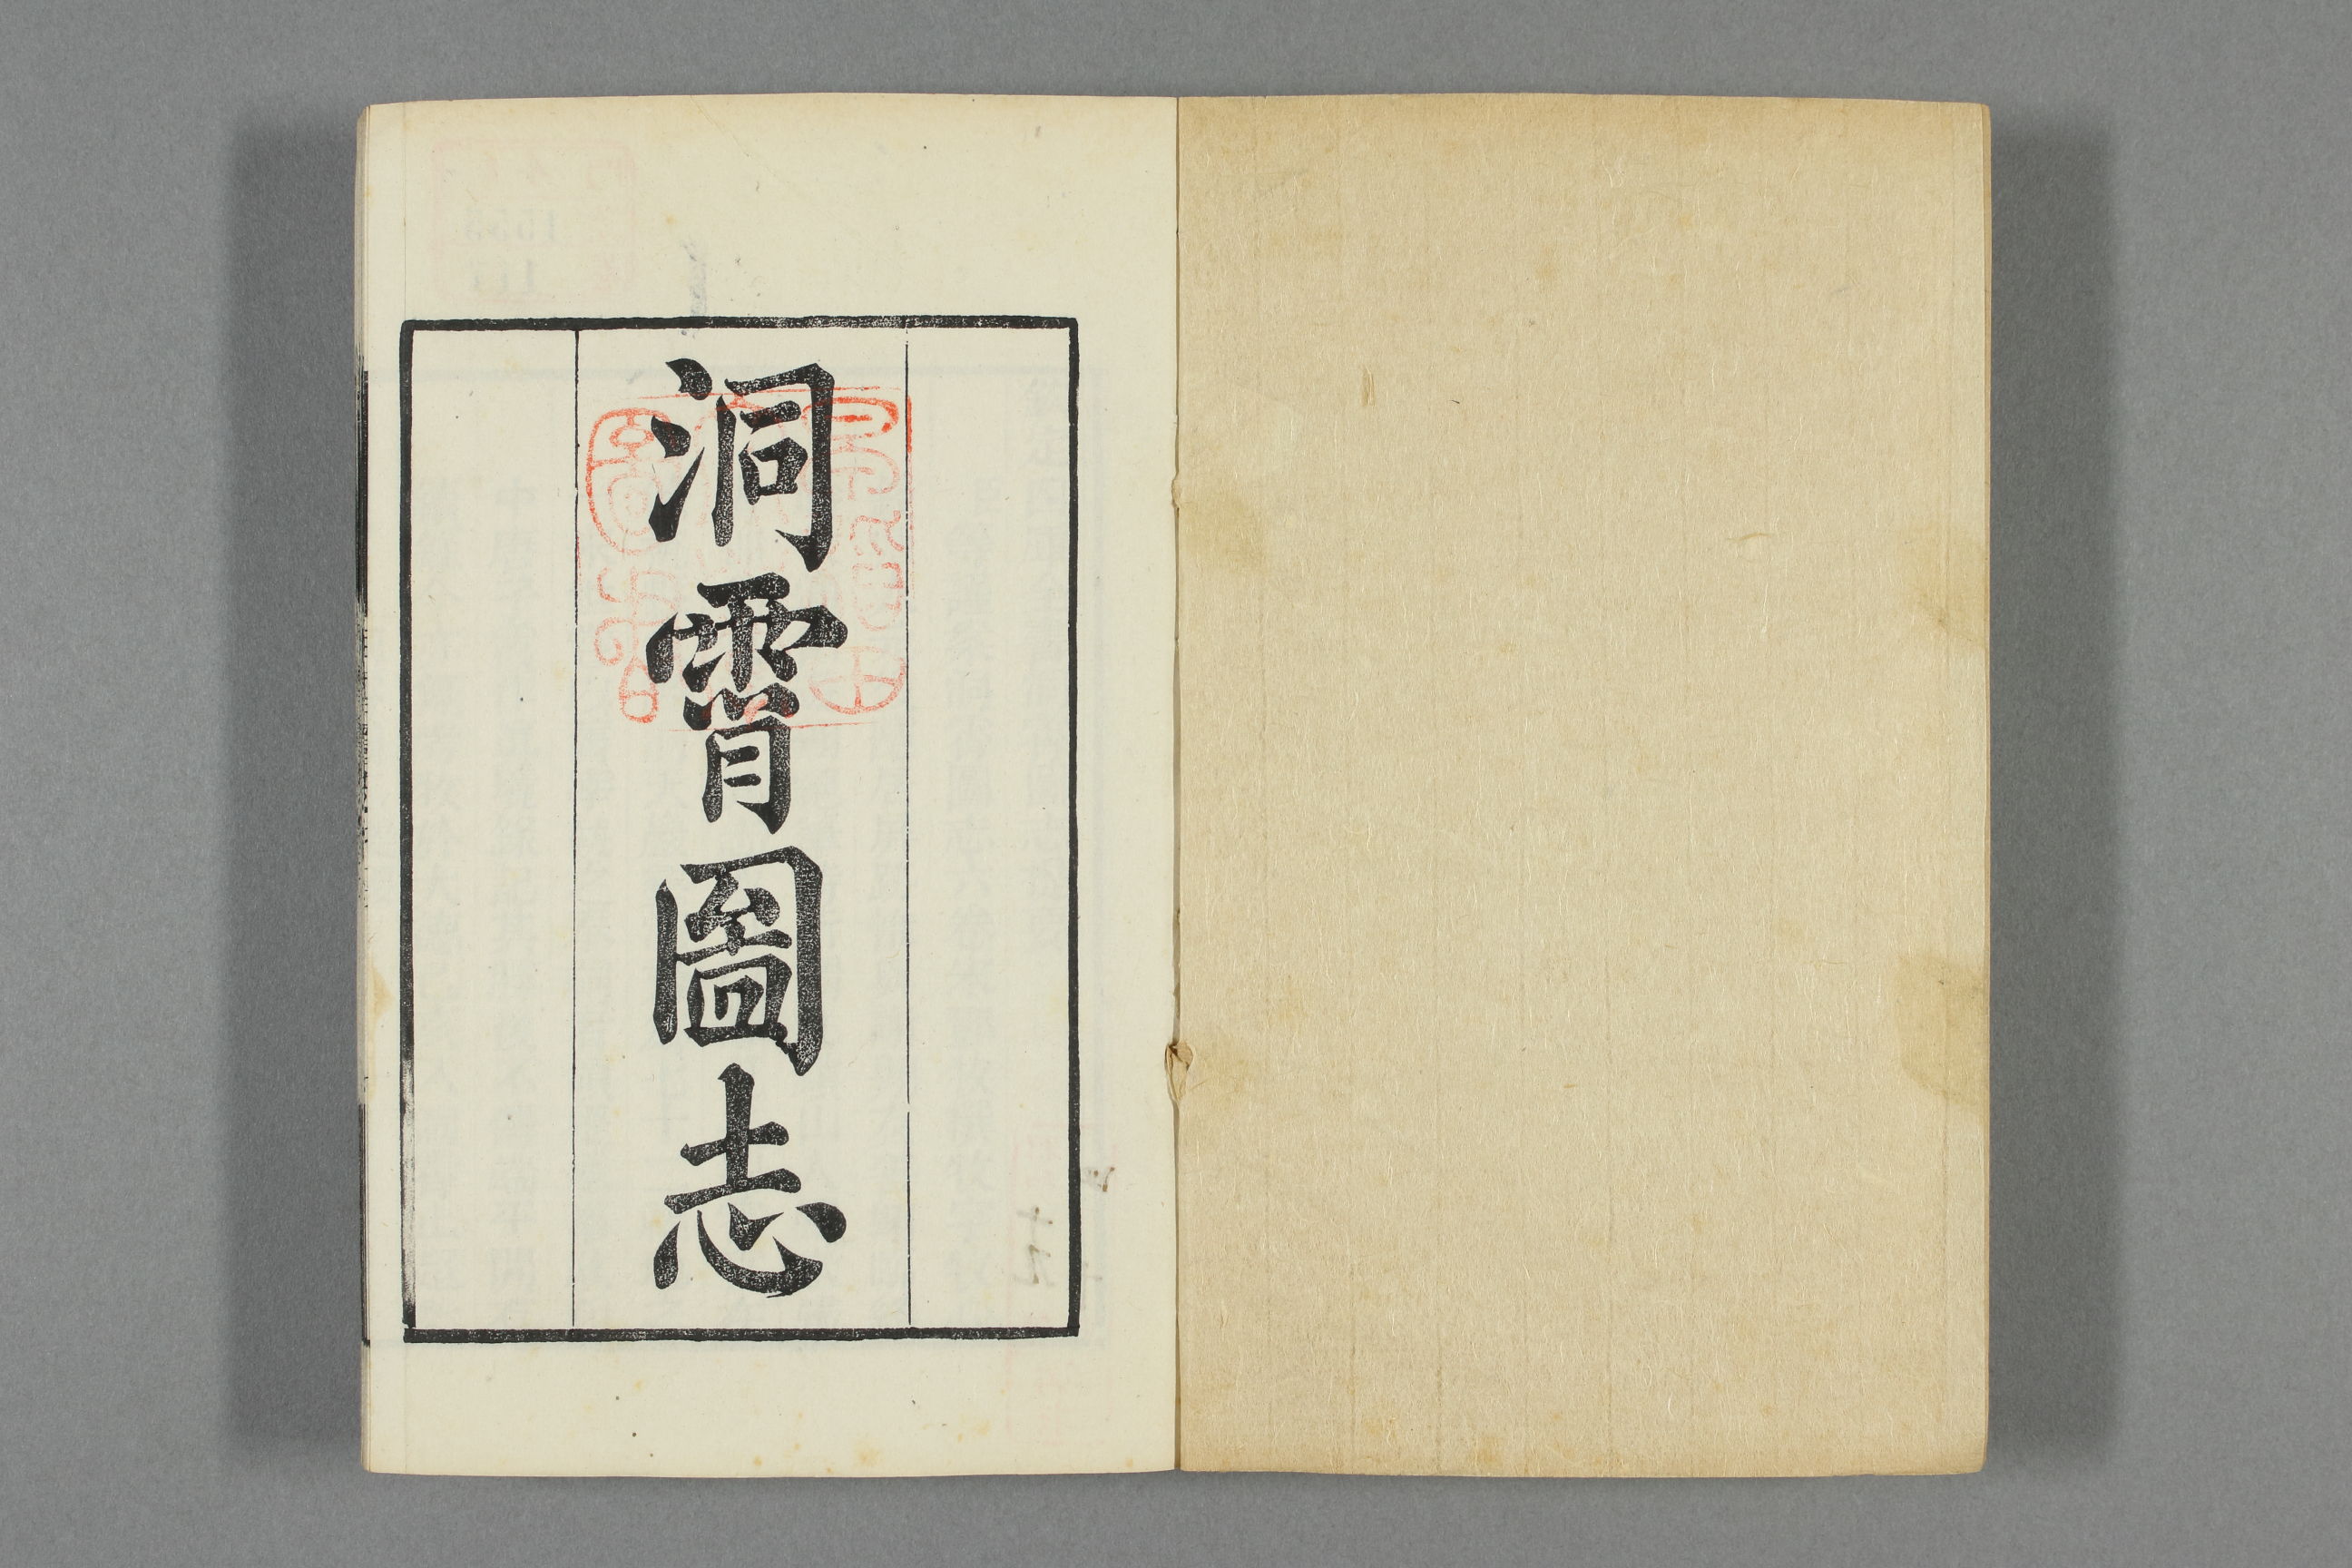 洞霄圖志